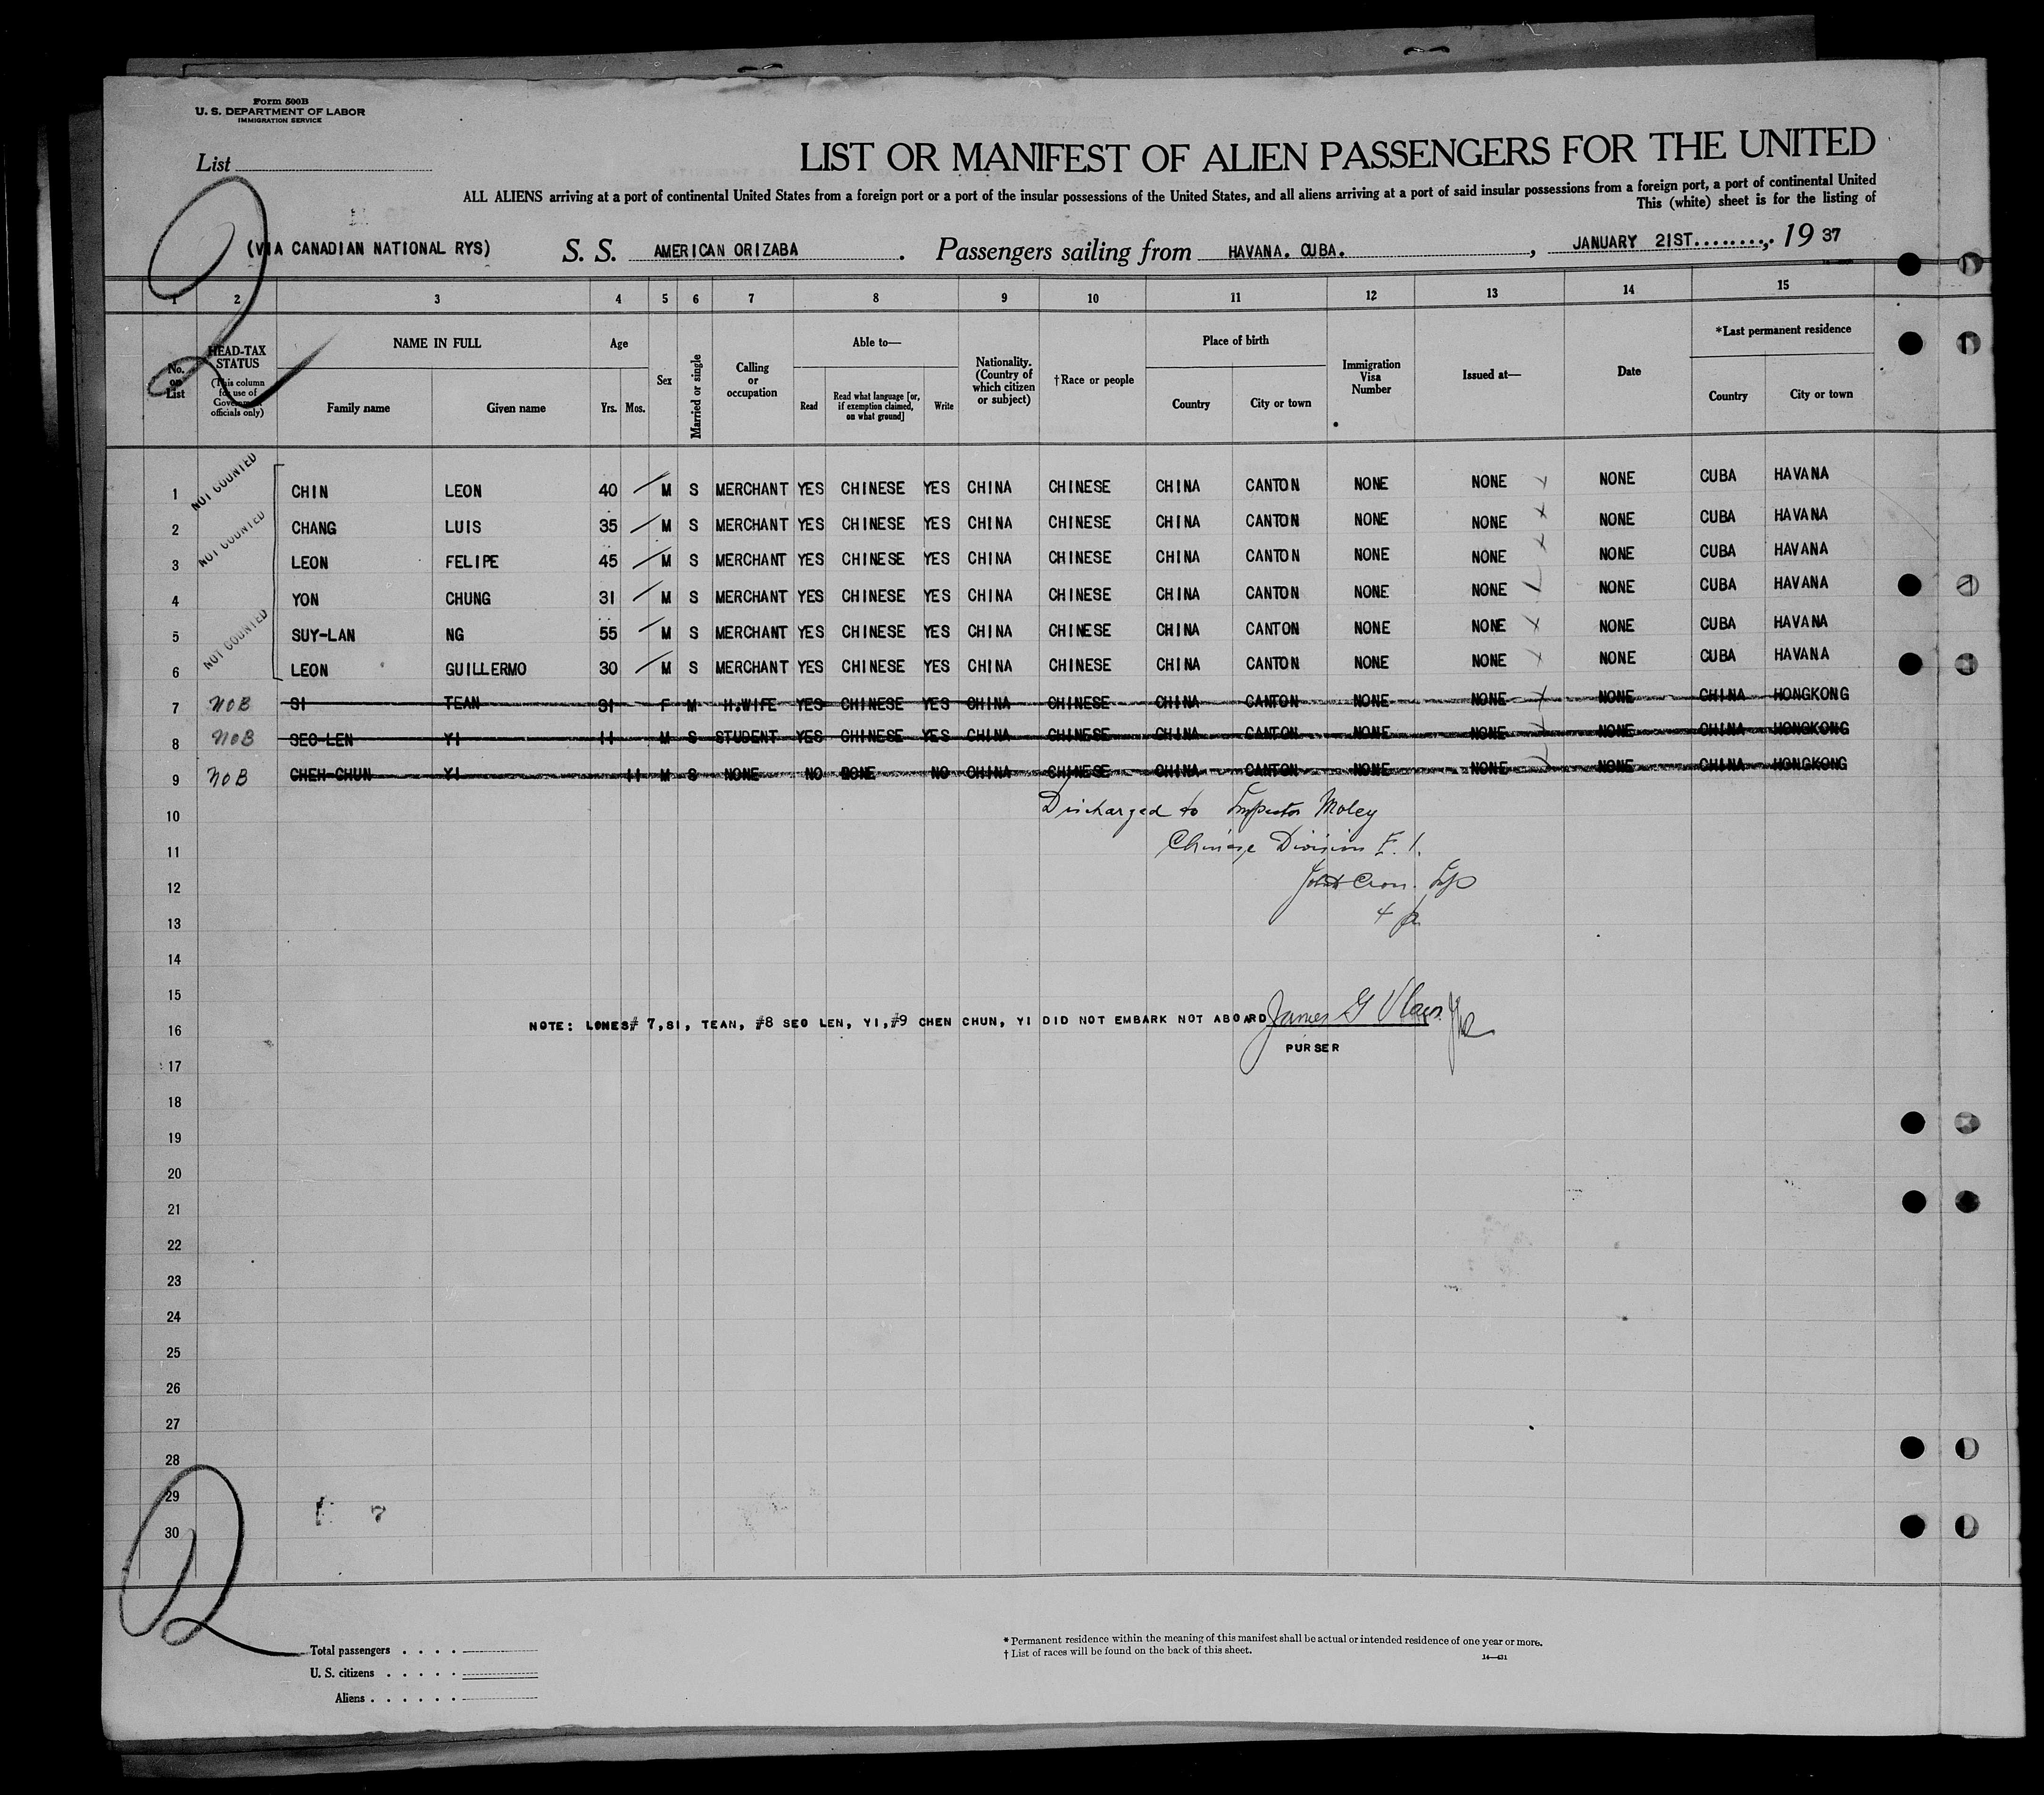 Form 500B
U. S. DEPARTMENT OF LABOR
IMMIGRATION SERVICE
List
LIST OR MANIFEST OF ALIEN PASSENGERS FOR THE UNITED
ALL ALIENS arriving at a port of continental United States from a foreign port or a port of the insular possessions of the United States, and all aliens arriving at a port of said insular possessions from a foreign port, a port of continental United
This (white) sheet is for the listing of
2
(VIA CANADIAN NATIONAL RYS) S. S. AMERICAN ORIZABA. Passengers sailing from HAVANA. CUBA., JANUARY 21ST........, 19 37
1 2 3 4 5 6 7 8 9 10 11 12 13 14 15
No. on List
HEAD-TAX STATUS (This column for use of Government officials only)
NAME IN FULL Family name Given name
Age Yrs. Mos.
Sex
Married or single
Calling or occupation
Able to— Read Read what language [or, if exemption claimed, on what ground] Write
Nationality. (Country of which citizen or subject)
†Race or people
Place of birth Country City or town
Immigration Visa Number
Issued at—
Date
*Last permanent residence Country City or town
1 NOT COUNTED CHIN LEON 40 M S MERCHANT YES CHINESE YES CHINA CHINESE CHINA CANTON NONE NONE NONE CUBA HAVANA
2 NOT COUNTED CHANG LUIS 35 M S MERCHANT YES CHINESE YES CHINA CHINESE CHINA CANTON NONE NONE NONE CUBA HAVANA
3 LEON FELIPE 45 M S MERCHANT YES CHINESE YES CHINA CHINESE CHINA CANTON NONE NONE NONE CUBA HAVANA
4 YON CHUNG 31 M S MERCHANT YES CHINESE YES CHINA CHINESE CHINA CANTON NONE NONE NONE CUBA HAVANA
5 NOT COUNTED SUY-LAN NG 55 M S MERCHANT YES CHINESE YES CHINA CHINESE CHINA CANTON NONE NONE NONE CUBA HAVANA
6 LEON GUILLERMO 30 M S MERCHANT YES CHINESE YES CHINA CHINESE CHINA CANTON NONE NONE NONE CUBA HAVANA
7 NOB SI TEAN 31 F M H.WIFE YES CHINESE YES CHINA CHINESE CHINA CANTON NONE NONE NONE CHINA HONGKONG
8 NOB SEO-LEN YI 11 M S STUDENT YES CHINESE YES CHINA CHINESE CHINA CANTON NONE NONE NONE CHINA HONGKONG
9 NOB CHEH-CHUN YI 11 M S NONE NO NO CHINA CHINESE CHINA CANTON NONE NONE NONE CHINA HONGKONG
10 Discharged to Inspector Moley
11 Chinese Division E. I.
12
13
14
15
16 NOTE: LONES# 7,SI, TEAN, #8 SEO LEN, YI,#9 CHEN CHUN, YI DID NOT EMBARK NOT ABOARD James G
PURSER
17
18
19
20
21
22
23
24
25
26
27
28
29
30
2
Total passengers . . . .
U. S. citizens . . . . .
Aliens . . . . . .
* Permanent residence within the meaning of this manifest shall be actual or intended residence of one year or more.
† List of races will be found on the back of this sheet.
14—431